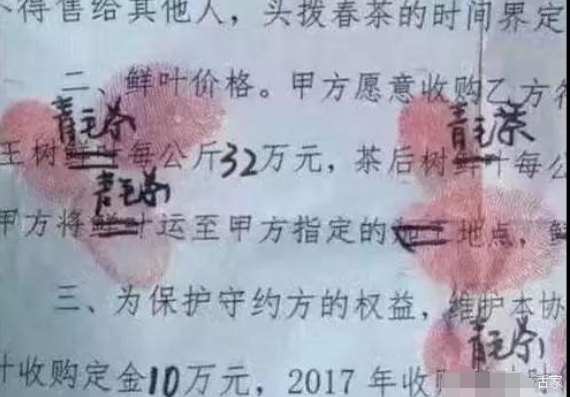 不得售给其他人，头拨春茶的时间界定
二、鲜叶价格。甲方愿意收购乙方符
青毛茶 青毛茶
王树鲜叶每公斤32万元，茶后树鲜叶每公
青毛茶
甲方将鲜叶运至甲方指定的地点，鲜
三、为保护守约方的权益，维护本协
青毛茶
叶收购定金10万元，2017年收购
古家